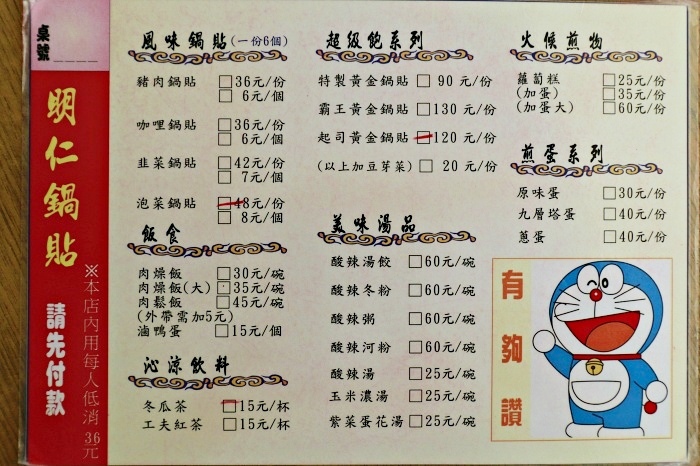 桌號____
明仁鍋貼
請先付款
※本店內用每人低消36元
風味鍋貼(一份6個)
豬肉鍋貼 □36元/份
□ 6元/個
咖哩鍋貼 □36元/份
□ 6元/個
韭菜鍋貼 □42元/份
□ 7元/個
泡菜鍋貼 □48元/份
□ 8元/個
飯食
肉燥飯 □30元/碗
肉燥飯(大) □35元/碗
肉鬆飯 □45元/碗
(外帶需加5元)
滷鴨蛋 □15元/個
沁涼飲料
冬瓜茶 □15元/杯
工夫紅茶 □15元/杯
超級飽系列
特製黃金鍋貼 □ 90 元/份
霸王黃金鍋貼 □130 元/份
起司黃金鍋貼 □120 元/份
(以上加豆芽菜) □ 20 元/份
美味湯品
酸辣湯餃 □60元/碗
酸辣冬粉 □60元/碗
酸辣粥 □60元/碗
酸辣河粉 □60元/碗
酸辣湯 □25元/碗
玉米濃湯 □25元/碗
紫菜蛋花湯 □25元/碗
火候煎物
蘿蔔糕 □25元/份
(加蛋) □35元/份
(加蛋大) □60元/份
煎蛋系列
原味蛋 □30元/份
九層塔蛋 □40元/份
蔥蛋 □40元/份
有夠讚